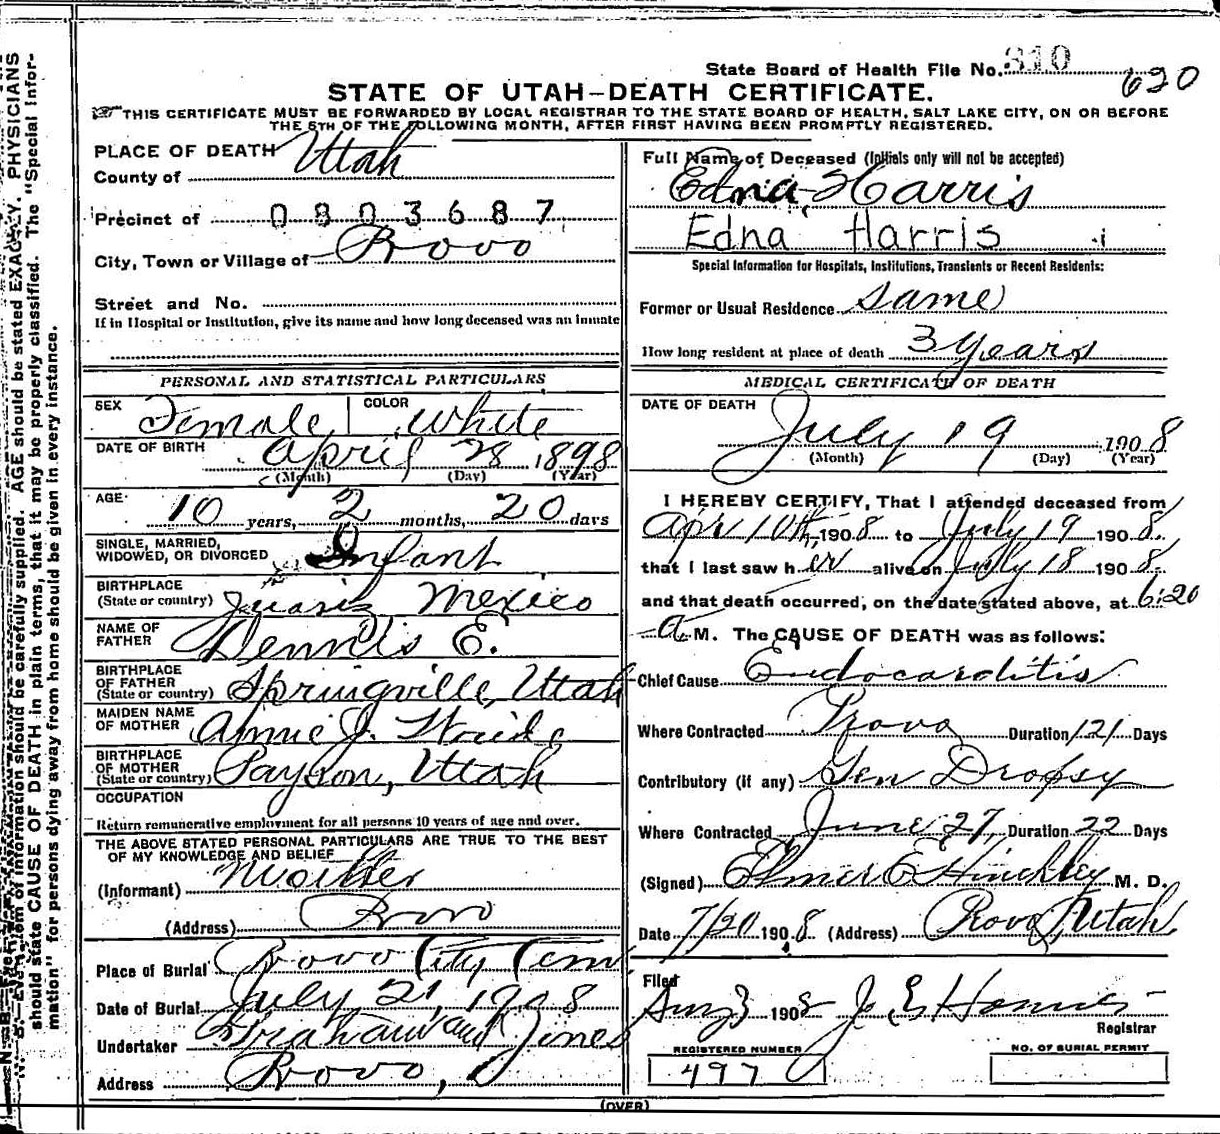 State Board of Health File No. 310
620
STATE OF UTAH—DEATH CERTIFICATE.
THIS CERTIFICATE MUST BE FORWARDED BY LOCAL REGISTRAR TO THE STATE BOARD OF HEALTH, SALT LAKE CITY, ON OR BEFORE
THE 5TH OF THE FOLLOWING MONTH, AFTER FIRST HAVING BEEN PROMPTLY REGISTERED.
PLACE OF DEATH
County of Utah
Precinct of 0803687
City, Town or Village of Provo
Street and No.
If in Hospital or Institution, give its name and how long deceased was an inmate
PERSONAL AND STATISTICAL PARTICULARS
SEX Female COLOR White
DATE OF BIRTH April 28 1898
(Month) (Day) (Year)
AGE 10 years, 2 months, 20 days
SINGLE, MARRIED,
WIDOWED, OR DIVORCED Infant
BIRTHPLACE
(State or country) Juariz Mexico
NAME OF
FATHER Dennis E.
BIRTHPLACE
OF FATHER
(State or country) Springville, Utah
MAIDEN NAME
OF MOTHER Annie J.
BIRTHPLACE
OF MOTHER
(State or country) Payson, Utah
OCCUPATION
Return remunerative employment for all persons 10 years of age and over.
THE ABOVE STATED PERSONAL PARTICULARS ARE TRUE TO THE BEST
OF MY KNOWLEDGE AND BELIEF
(Informant) Mother
(Address) Provo
Place of Burial Provo City Cem
Date of Burial July 21, 1908
Undertaker Graham and Jones
Address Provo,
Full Name of Deceased (Initials only will not be accepted)
Edna Harris
Edna Harris
Special Information for Hospitals, Institutions, Transients or Recent Residents:
Former or Usual Residence same
How long resident at place of death 3 years
MEDICAL CERTIFICATE OF DEATH
DATE OF DEATH
July 19 1908
(Month) (Day) (Year)
I HEREBY CERTIFY, That I attended deceased from
Apr 10th, 1908 to July 19 1908.
that I last saw her alive on July 18 1908.
and that death occurred, on the date stated above, at 6:20
a M. The CAUSE OF DEATH was as follows:
Chief Cause Endocarditis
Where Contracted Provo Duration 121 Days
Contributory (if any) Gen Dropsy
Where Contracted June 27, Duration 22 Days
(Signed) Elmer E Hinckley M. D.
Date 7/20 1908. (Address) Provo, Utah
Filed
Aug 3 1908
Registrar
REGISTERED NUMBER
497
NO. OF BURIAL PERMIT
(OVER)
N. B.—Every item of information should be carefully supplied. AGE should be stated EXACTLY. PHYSICIANS
should state CAUSE OF DEATH in plain terms, that it may be properly classified. The "Special Infor-
mation" for persons dying away from home should be given in every instance.